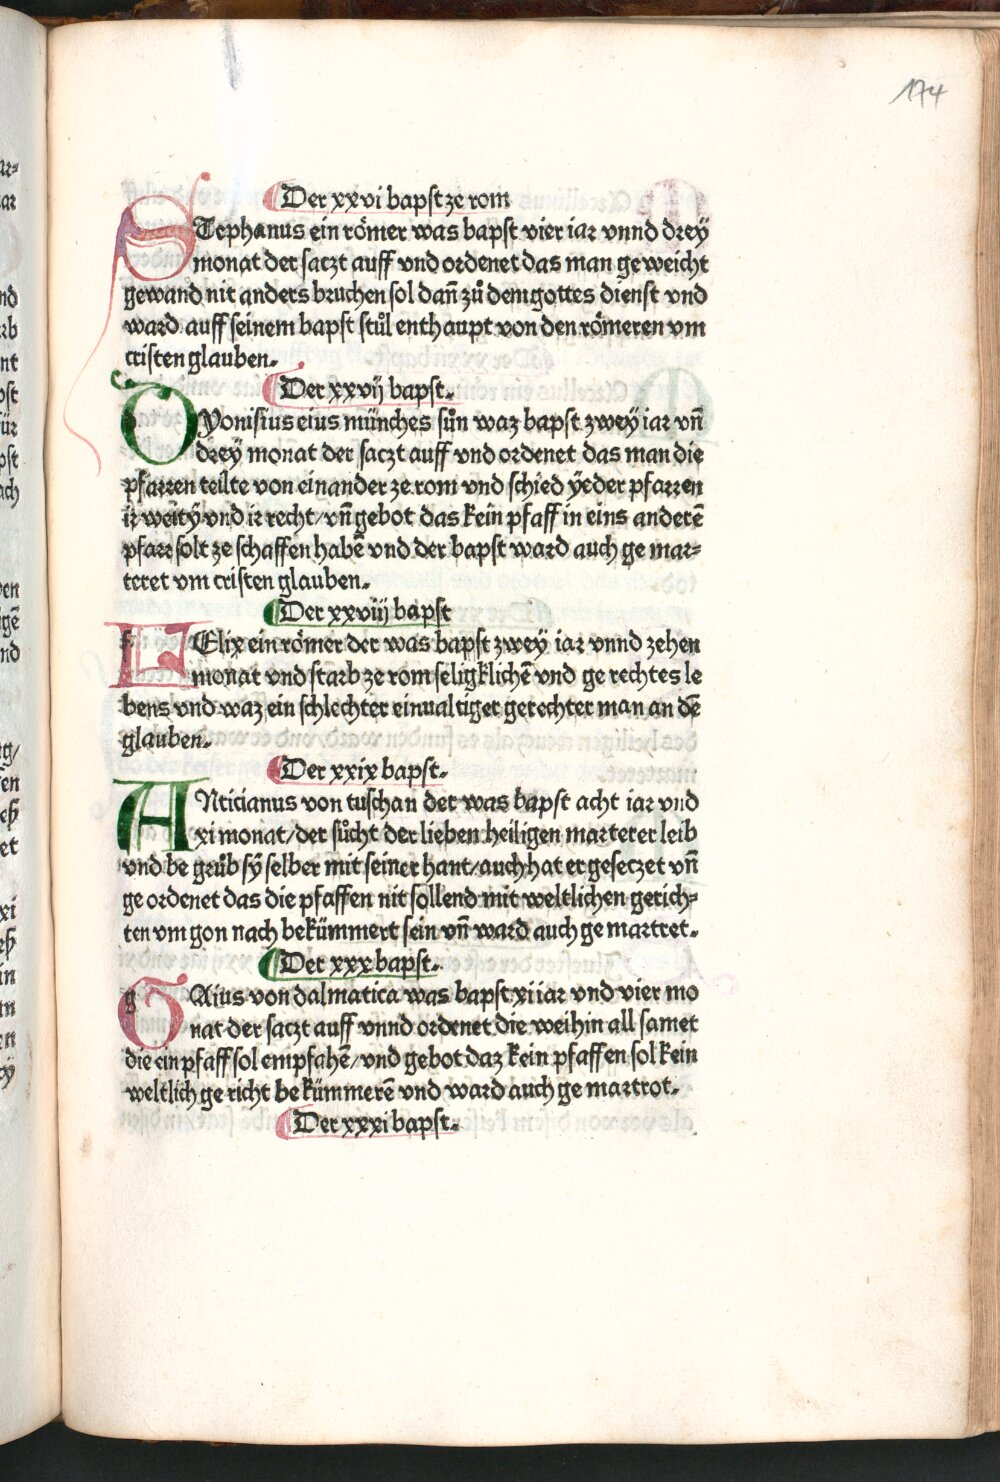 174
Der xxvi bapst ze rom
STephanus ein römer was bapst vier iar vnnd drey
monat der saczt auff vnd ordenet das man geweicht
gewand nit anders bruchen sol dañ zů dem gottes dienst vnd
ward auff seinem bapst stůl enthaupt von den römeren vm
cristen glauben.
Der xxvij bapst.
DYonisius eius münches sůn waz bapst zwey iar vñ
drey monat der saczt auff vnd ordenet das man die
pfarren teilte von einander ze rom vnd schied yeder pfarren
ir weitÿ vnd ir recht/ vñ gebot das kein pfaff in eins anderē
pfarr solt ze schaffen habē vnd der bapst ward auch ge mar⸗
teret vm cristen glauben.
Der xxviij bapst
FElix ein römer der was bapst zwey iar vnnd zehen
monat vnd starb ze rom seligklichē vnd ge rechtes le
bens vnd waz ein schlechter einualtiger gerechter man an dē
glauben.
Der xxix bapst.
ANticianus von tuschan der was bapst acht iar vnd
xi monat/ der sůcht der lieben heiligen marterer leib
vnd be grůb sÿ selber mit seiner hant/ auch hat er geseczet vñ
ge ordenet das die pfaffen nit sollend mit weltlichen gerich⸗
ten vm gon nach bekümmert sein vñ ward auch ge martret.
Der xxx bapst.
GAius von dalmatica was bapst xi iar vnd vier mo
nat der saczt auff vnnd ordenet die weihin all samet
die ein pfaff sol empfahē/ vnd gebot daz kein pfaffen sol kein
weltlich ge richt be kümmerē vnd ward auch ge martrot.
Der xxxi bapst.